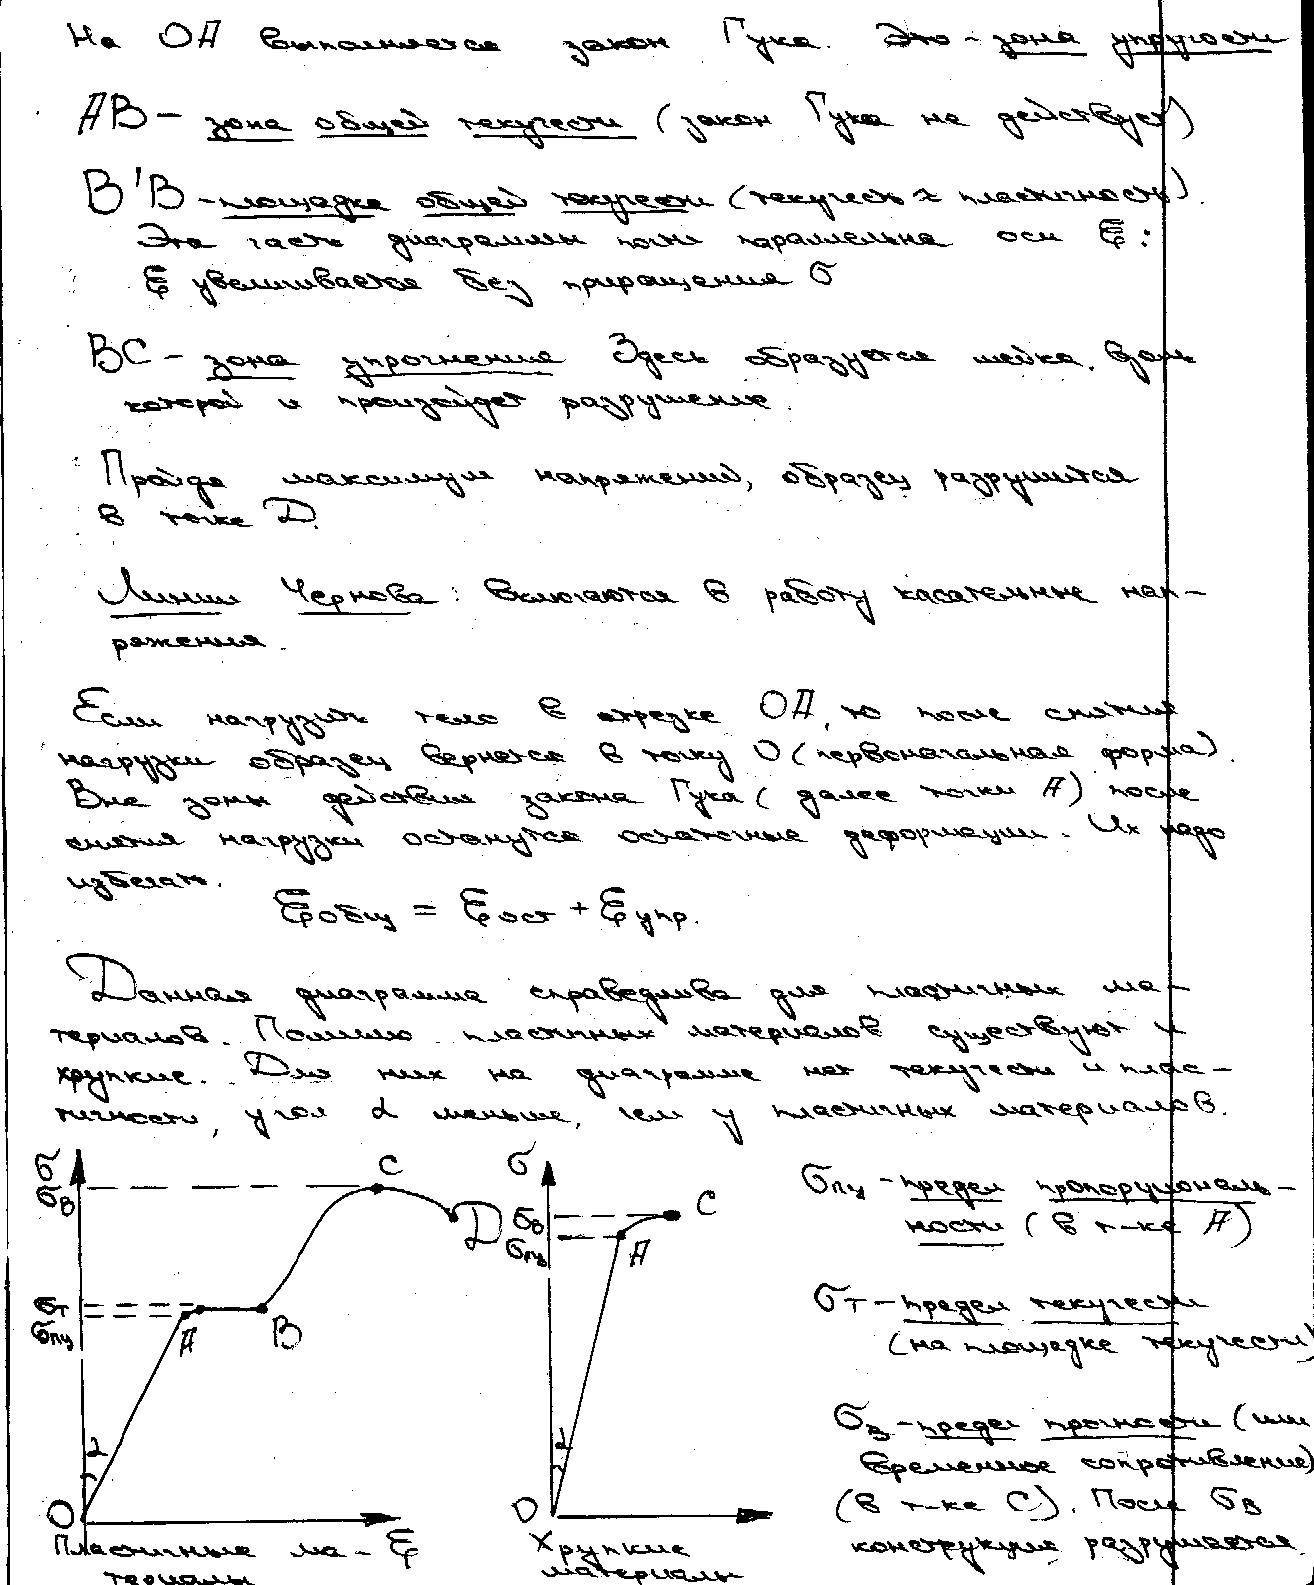 На ОА выполняется закон Гука. Это - зона упругости
АВ - зона общей текучести (закон Гука не действует)
В'В - площадка общей текучести (текучесть ≈ пластичность).
Эта часть диаграммы почти параллельна оси ξ:
ξ увеличивается без приращения σ
ВС - зона упрочнения Здесь образуется шейка, вдоль
которой и произойдет разрушение.
Пройдя максимум напряжений, образец разрушится
в точке D.
Линии Чернова: включаются в работу касательные нап-
ряжения.
Если нагрузить тело в отрезке ОА, то после снятия
нагрузки образец вернется в точку О (первоначальная форма).
Вне зоны действия закона Гука (далее точки А) после
снятия нагрузки останутся остаточные деформации. Их надо
избегать.
ξобщ = ξост + ξупр.
Данная диаграмма справедлива для пластичных ма-
териалов. Помимо пластичных материалов существуют и
хрупкие. Для них на диаграмме нет текучести и плас-
тичности, угол α меньше, чем у пластичных материалов.
σ
σв
C
D
σт
σпц
A
B
α
О
ξ
Пластичные ма-
териалы
σ
σв
σпц
C
A
α
О
Хрупкие
материалы
σпц - предел пропорциональ-
ности (в т-ке А)
σт - предел текучести
(на площадке текучести)
σв - предел прочности (или
временное сопротивление)
(в т-ке С). После σв
конструкция разрушается.